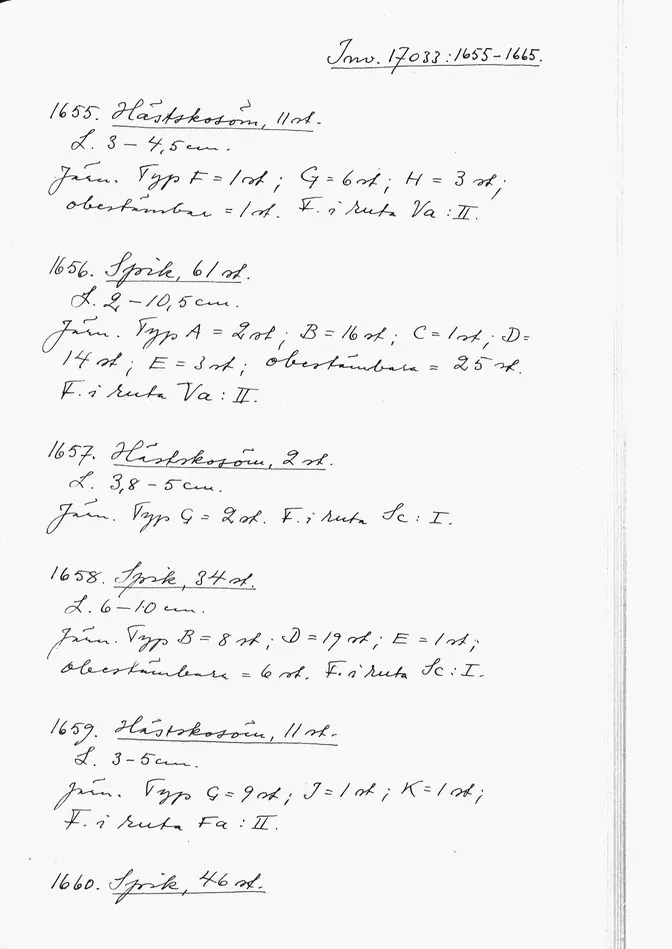 Inv. 17033:1655-1665.
1655. Hästskosöm, 11 st.
L. 3-4,5 cm.
Järn. Typ F=1 st; G=6 st; H=3 st;
obestämbar=1 st. F. i ruta Va:II.
1656. Spik, 61 st.
L. 2,-10,5 cm.
Järn. Typ A=2 st; B=16 st; C=1 st; D=
14 st; E=3 st; obestämbara=25 st.
F. i ruta Va:II.
1657. Hästskosöm, 2 st.
L. 3,8-5 cm.
Järn. Typ G=2 st. F. i ruta Sc:I.
1658. Spik, 34 st.
L. 6-10 cm.
Järn. Typ B=8 st; D=19 st; E=1 st;
obestämbara=6 st. F. i ruta Sc:I.
1659. Hästskosöm, 11 st.
L. 3-5 cm.
Järn. Typ G=9 st; J=1 st; K=1 st;
F. i ruta Fa:II.
1660. Spik, 46 st.